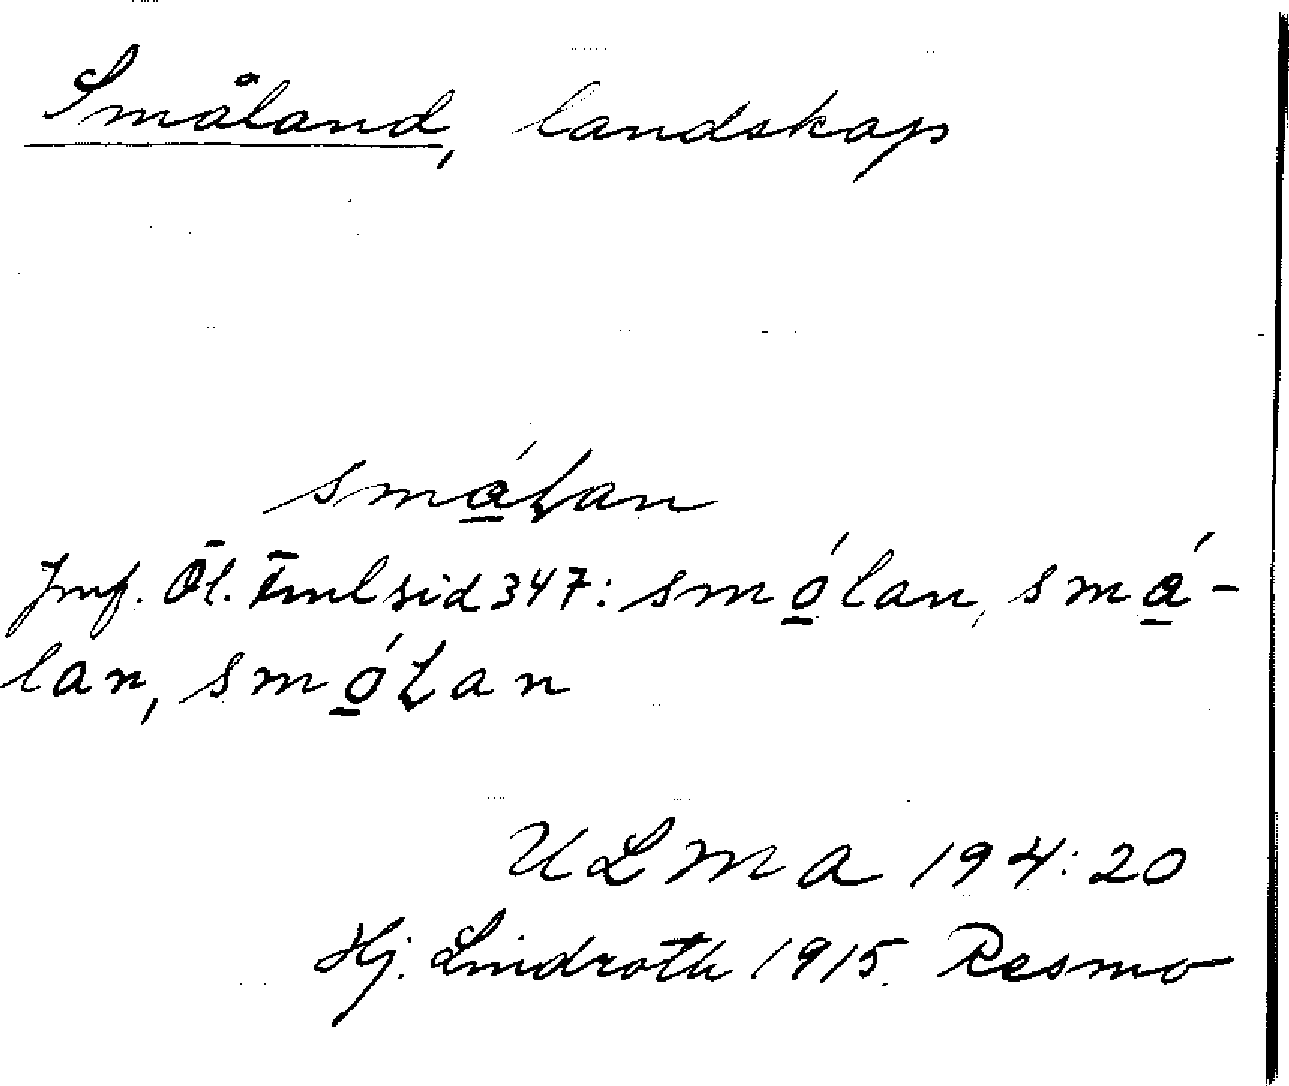 Småland, landskap
småłan
Jmf. Öl. Fml sid 347: smólan, små-
lan, smółan
ULMA 194:20
Hj. Lindroth 1915. Resmo